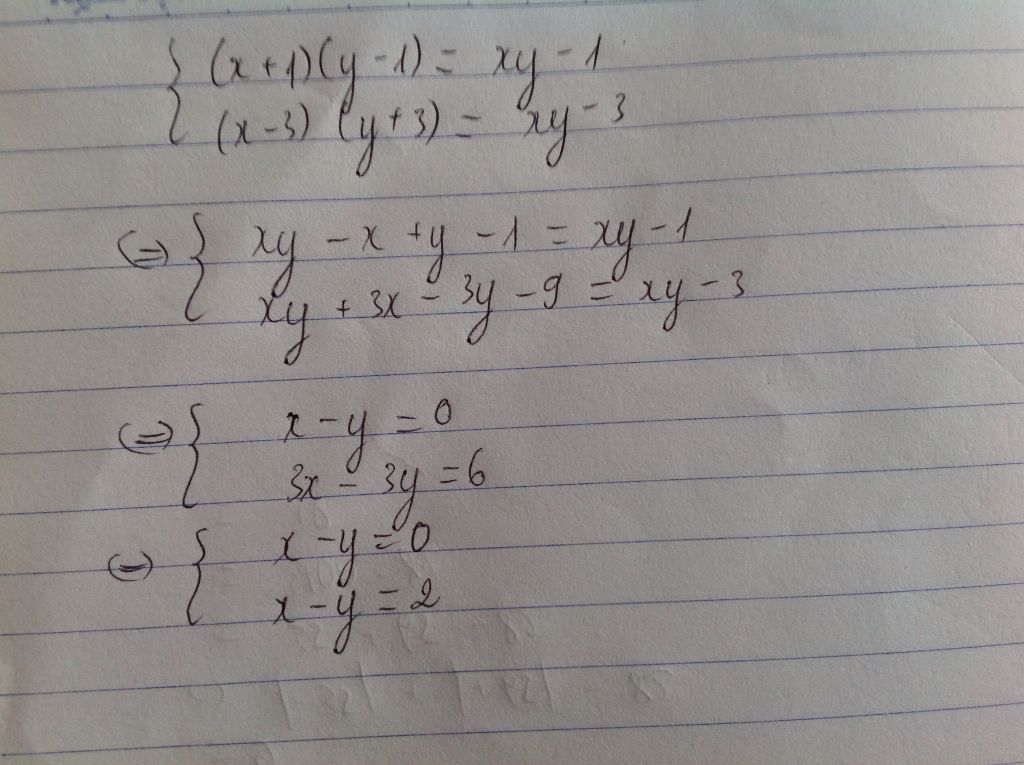 { (x+1)(y-1) = xy-1
(x-3) (y+3) = xy-3
(=) { xy - x + y - 1 = xy - 1
xy + 3x - 3y - 9 = xy - 3
(=) { x - y = 0
3x - 3y = 6
(=) { x - y = 0
x - y = 2